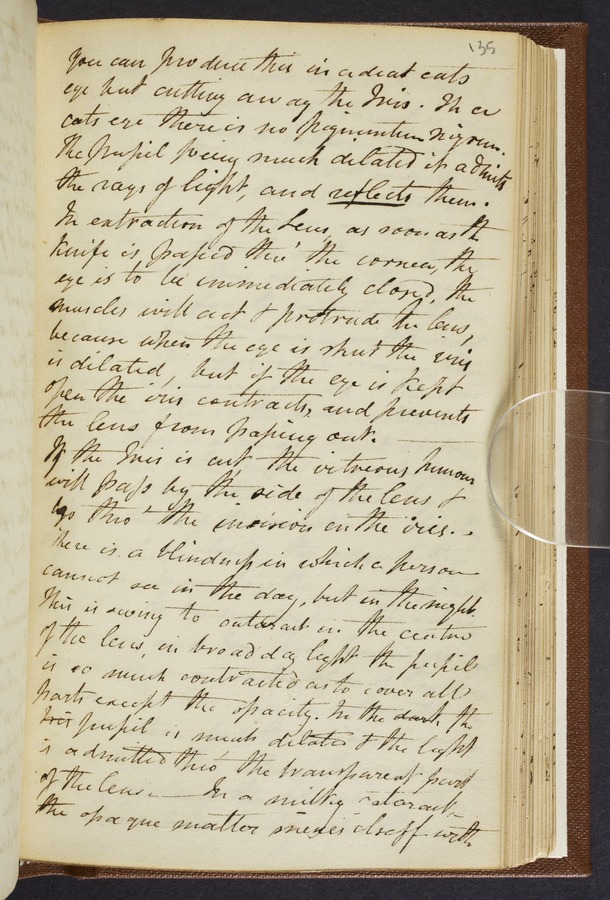 135
you can produce this in a dead cats
eye but cutting away the Iris. In a
cats eye there is no pigmentum nigrum.
The pupil being much dilated it admits
the rays of light, and reflects them.
In extraction of the Lens, as soon as the
knife is passed thro' the cornea, the
eye is to be immediately closed, the
muscles will act & protrude the lens,
because when the eye is shut the iris
is dilated, but if the eye is kept
open the iris contracts, and prevents
the lens from passing out.
If the Iris is cut the vitreous humour
will pass by the side of the lens &
go thro' the incision in the iris.
There is a blindness in which a person
cannot see in the day, but in the night.
This is owing to cataract in the centre
of the lens, in broad day light the pupil
is so much contracted as to cover all
parts except the opacity. In the dark, the
pupil is much dilated & the light
is admitted thro' the transparent part
of the lens. In a milky cataract
the opaque matter itself with